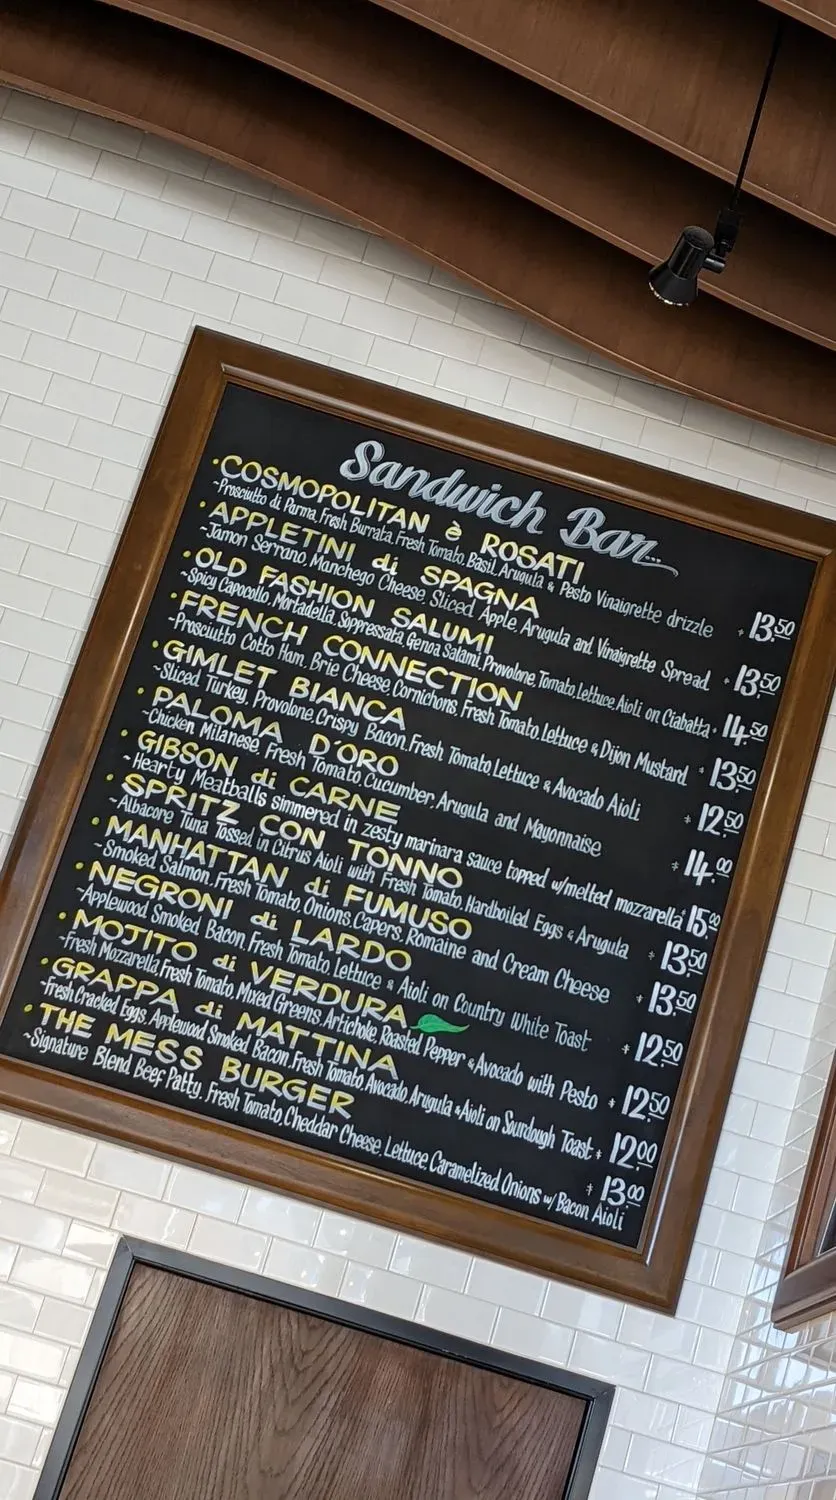 Sandwich Bar...
·COSMOPOLITAN è ROSATI · 13.50
~Prosciutto di Parma, Fresh Burrata, Fresh Tomato, Basil, Arugula & Pesto Vinaigrette drizzle
·APPLETINI di SPAGNA · 13.50
~Jamon Serrano, Manchego Cheese, Sliced Apple, Arugula and Vinaigrette Spread
·OLD FASHION SALUMI · 14.50
~Spicy Capocollo, Mortadella, Soppressata, Genoa Salami, Provolone, Tomato, Lettuce, Aioli on Ciabatta
·FRENCH CONNECTION · 13.50
~Prosciutto Cotto Ham, Brie Cheese, Cornichons, Fresh Tomato, Lettuce & Dijon Mustard
·GIMLET BIANCA · 12.50
~Sliced Turkey, Provolone, Crispy Bacon, Fresh Tomato, Lettuce & Avocado Aioli
·PALOMA D'ORO · 14.00
~Chicken Milanese, Fresh Tomato, Cucumber, Arugula and Mayonnaise
·GIBSON di CARNE · 15.00
~Hearty Meatballs simmered in zesty marinara sauce topped w/melted mozzarella
·SPRITZ CON TONNO · 13.50
~Albacore Tuna Tossed in Citrus Aioli with Fresh Tomato, Hardboiled Eggs & Arugula
·MANHATTAN di FUMUSO · 13.50
~Smoked Salmon, Fresh Tomato, Onions, Capers, Romaine and Cream Cheese
·NEGRONI di LARDO · 12.50
~Applewood Smoked Bacon, Fresh Tomato, Lettuce & Aioli on Country White Toast
·MOJITO di VERDURA · 12.50
~Fresh Mozzarella, Fresh Tomato, Mixed Greens, Artichoke, Roasted Pepper & Avocado with Pesto
·GRAPPA di MATTINA · 12.00
~Fresh Cracked Eggs, Applewood Smoked Bacon, Fresh Tomato, Avocado, Arugula & Aioli on Sourdough Toast
·THE MESS BURGER · 13.00
~Signature Blend Beef Patty, Fresh Tomato, Cheddar Cheese, Lettuce, Caramelized Onions w/ Bacon Aioli